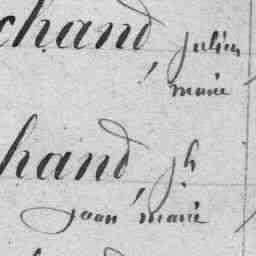 chand, julien
marie
hand, jh
jean marie